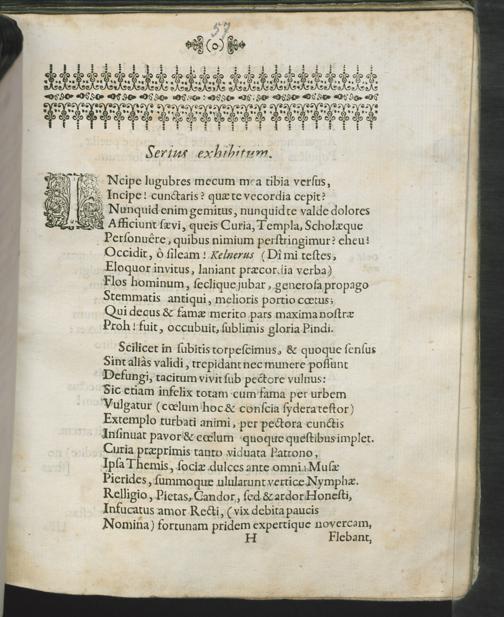 57
(o)
Serius exhibitum.
INcipe lugubres mecum mea tibia versus,
Incipe! cunctaris? quæ te vecordia cepit?
Nunquid enim gemitus, nunquid te valde dolores
Afficiunt sævi, queis Curia, Templa, Scholæque
Personuêre, quibus nimium perstringimur? eheu!
Occidit, ô sileam! Kelnerus (Dî mi testes,
Eloquor invitus, laniant præcordia verba)
Flos hominum, seclique jubar, generosa propago
Stemmatis antiqui, melioris portio cœtus;
Qui decus & famæ merito pars maxima nostræ
Proh! fuit, occubuit, sublimis gloria Pindi.
Scilicet in subitis torpescimus, & quoque sensus
Sint aliàs validi, trepidant nec munere possunt
Defungi, tacitum vivit sub pectore vulnus:
Sic etiam infelix totam cum fama per urbem
Vulgatur (cœlum hoc & conscia sydera testor)
Extemplo turbati animi, per pectora cunctis
Insinuat pavor & cœlum quoque questibus implet.
Curia præprimis tanto viduata Patrono,
Ipsa Themis, sociæ dulces ante omnia Musæ
Pierides, summoque ulularunt vertice Nymphæ.
Relligio, Pietas, Candor, sed & ardor Honesti,
Infucatus amor Recti, (vix debita paucis
Nomina) fortunam pridem expertique novercam,
H Flebant,